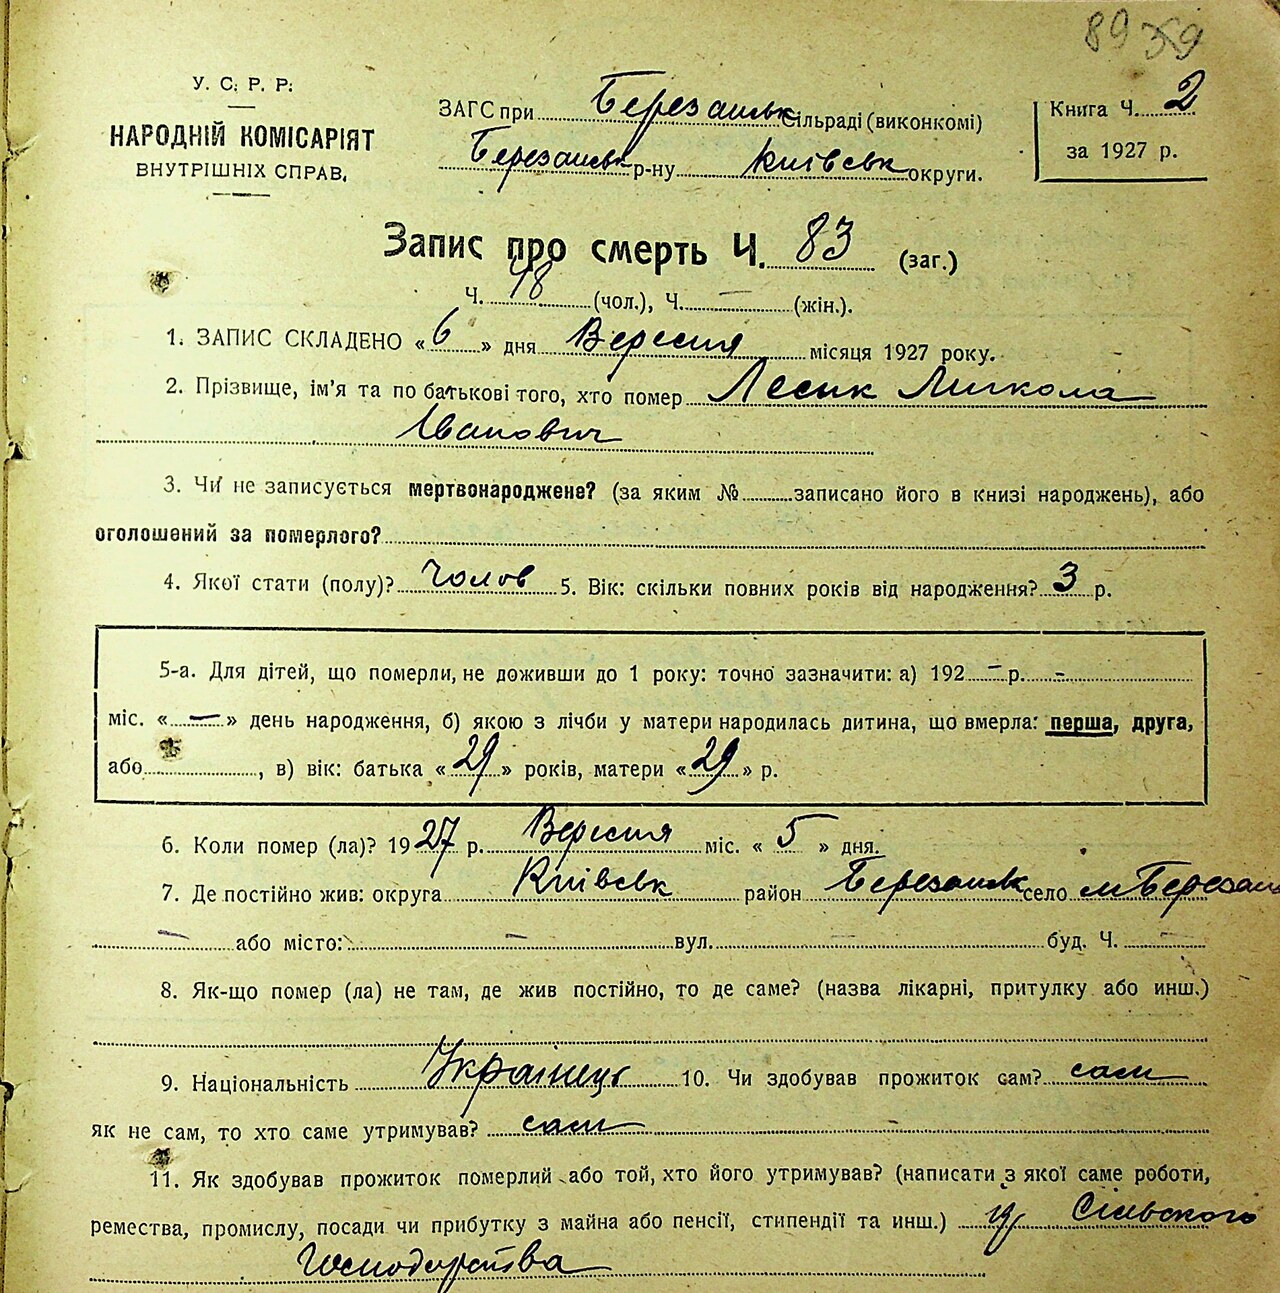 89 39
У. С. Р. Р.
НАРОДНІЙ КОМІСАРІЯТ
ВНУТРІШНІХ СПРАВ.
ЗАГС при Березанськ сільраді (виконкомі)
Березанськ р-ну Київськ округи.
Книга Ч. 2
за 1927 р.
Запис про смерть Ч. 83 (заг.)
Ч. 48 (чол.), Ч. — (жін.).
1. ЗАПИС СКЛАДЕНО «6» дня Вересня місяця 1927 року.
2. Прізвище, ім'я та по батькові того, хто помер Лесик Микола
Іванович
3. Чи не записується мертвонароджене? (за яким № записано його в книзі народжень), або
оголошений за померлого?
4. Якої стати (полу)? Чолов 5. Вік: скільки повних років від народження? 3 р.
5-а. Для дітей, що померли, не доживши до 1 року: точно зазначити: а) 192 — р. -
міс. « — » день народження, б) якою з лічби у матери народилась дитина, що вмерла: перша, друга,
або , в) вік: батька «29» років, матери «29» р.
6. Коли помер (ла)? 1927 р. Вересня міс. « 5 » дня.
7. Де постійно жив: округа Київськ район Березанськ село м Березань
— або місто: — вул. — буд. Ч. —
8. Як-що помер (ла) не там, де жив постійно, то де саме? (назва лікарні, притулку або инш.)
9. Національність Українець 10. Чи здобував прожиток сам? сам
як не сам, то хто саме утримував? сам
11. Як здобував прожиток померлий або той, хто його утримував? (написати з якої саме роботи,
ремества, промислу, посади чи прибутку з майна або пенсії, стипендії та инш.) із Сільского
Господарства